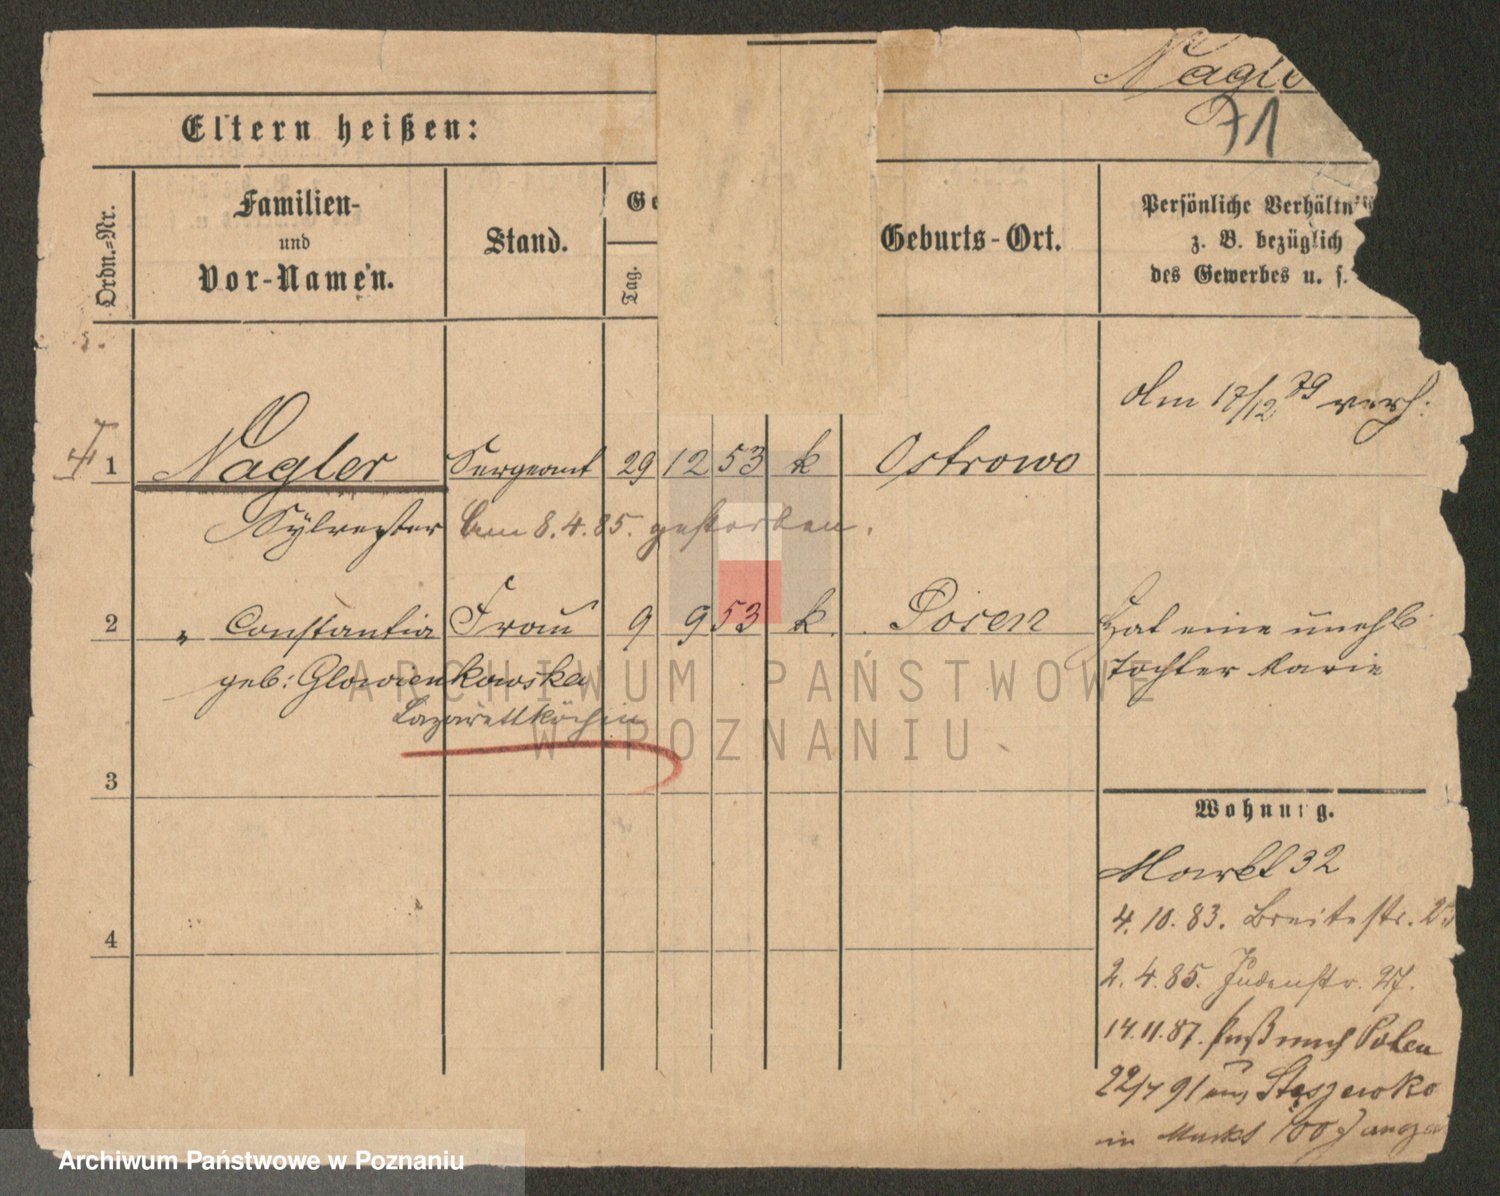 Nagle
71
Eltern heißen:
Ordn.-Nr.
Familien-
und
Vor-Namen.
Stand.
Ge
Tag.
Geburts-Ort.
Persönliche Verhältn
z. B. bezüglich
des Gewerbes u. s.
Am 17/12 79 verh:
1 Nagler Sergeant 29 12 53 k Ostrowo
Sylvester Am 8.4.85. gestorben.
2 " Constantia Frau 9 9 53 k. Posen Hat eine unehl
geb: Glowienkowska Tochter Marie
Lazarettköchin
3
Wohnung.
Markt 32
4.10.83. Breitestr.
4
2.4.85. Judenstr. 27.
14.11.87. Paß nach Polen
22/7 91 Stęszewko
in
ARCHIWUM PAŃSTWOWE
W POZNANIU
Archiwum Państwowe w Poznaniu